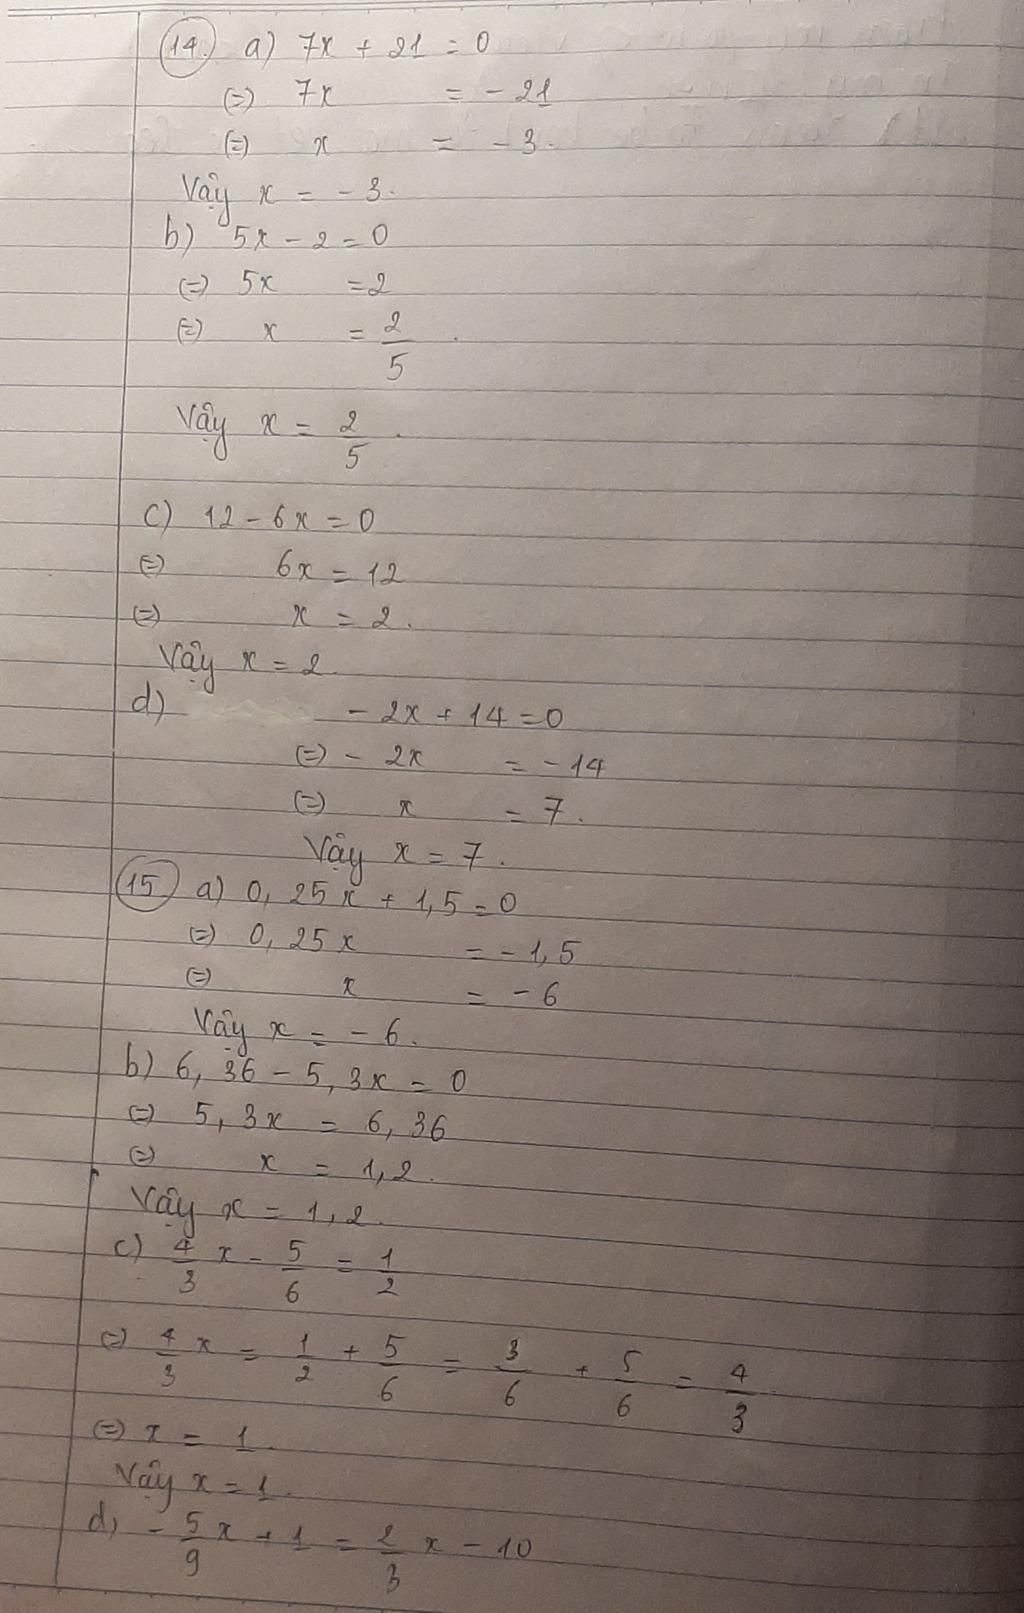 14. a) 7x + 21 = 0
(=) 7x = - 21
(=) x = - 3.
Vậy x = - 3.
b) 5x - 2 = 0
(=) 5x = 2
(=) x = 2/5.
Vậy x = 2/5.
c) 12 - 6x = 0
(=) 6x = 12
(=) x = 2.
Vậy x = 2
d) - 2x + 14 = 0
(=) - 2x = - 14
(=) x = 7.
Vậy x = 7.
15 a) 0,25x + 1,5 = 0
(=) 0,25x = - 1,5
(=) x = - 6
Vậy x = - 6.
b) 6,36 - 5,3x = 0
(=) 5,3x = 6,36
(=) x = 1,2.
Vậy x = 1,2.
c) 4/3 x - 5/6 = 1/2
(=) 4/3 x = 1/2 + 5/6 = 3/6 + 5/6 = 4/3
(=) x = 1.
Vậy x = 1.
d) - 5/9 x + 1 = 2/3 x - 10